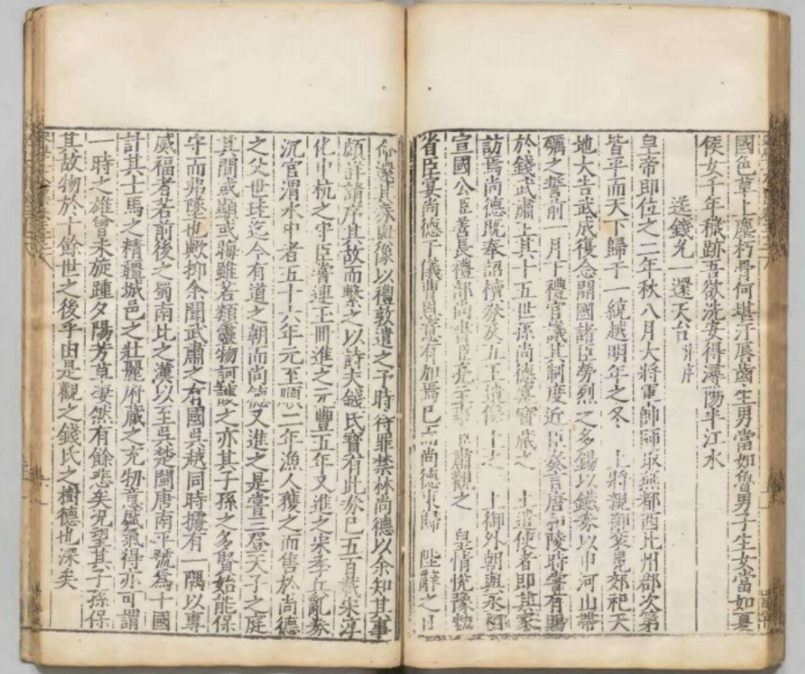 國色草上塵朽骨何堪汙脣齒生男當如魯男子生女當如夏
侯女千年穢跡吾欲洗安得潯陽半江水
送錢允一還天台并序
皇帝即位之二年秋八月大將軍帥師取燕都西北州郡次第
皆平而天下歸于一統越明年之冬 上將親御袞冕郊祀天
地大告武成復念開國諸臣勞烈之多錫以鐵券以申河山帶
礪之誓前一月下禮官議其制度近臣奏言唐和陵時嘗有賜
於錢武肅王其十五世孫尚德寔寶藏之 上遣使者即其家
訪焉尚德既奉詔櫝券及五王遺像以進 上御外朝與丞相
宣國公臣善長禮部尚書臣亮主事臣肅觀之 皇情悅豫勑
省臣宴尚德于儀曹恩意有加焉已而尚德東歸 陛辭之日
命還其券與像以禮敦遣之予時待罪禁林尚德以余知其事
頗詳請序其故而繫之以詩夫錢氏寶有此券已五百載宋淳
化中杭之守臣嘗連玉冊進之元豐五年又進之宋季兵亂券
沉官渭水中者五十六年元至順二年漁人獲之而售於尚德
之父世珪迄今有道之朝而尚德又進之是嘗三登天子之庭
其間或顯或晦雖若類靈物訶護之亦其子孫之多賢始能保
守而弗墜也歟抑余聞武肅之有國吳越同時據有一隅以專
威福者若前後之蜀南北之漢以至吳楚閩唐南平號為十國
計其士馬之精彊城邑之壯麗府藏之充牣意盛氣得亦可謂
一時之雄曾未旋踵夕陽芳草凄然有餘悲矣況望其子孫保
其故物於十餘世之後乎由是觀之錢氏之樹德也深矣